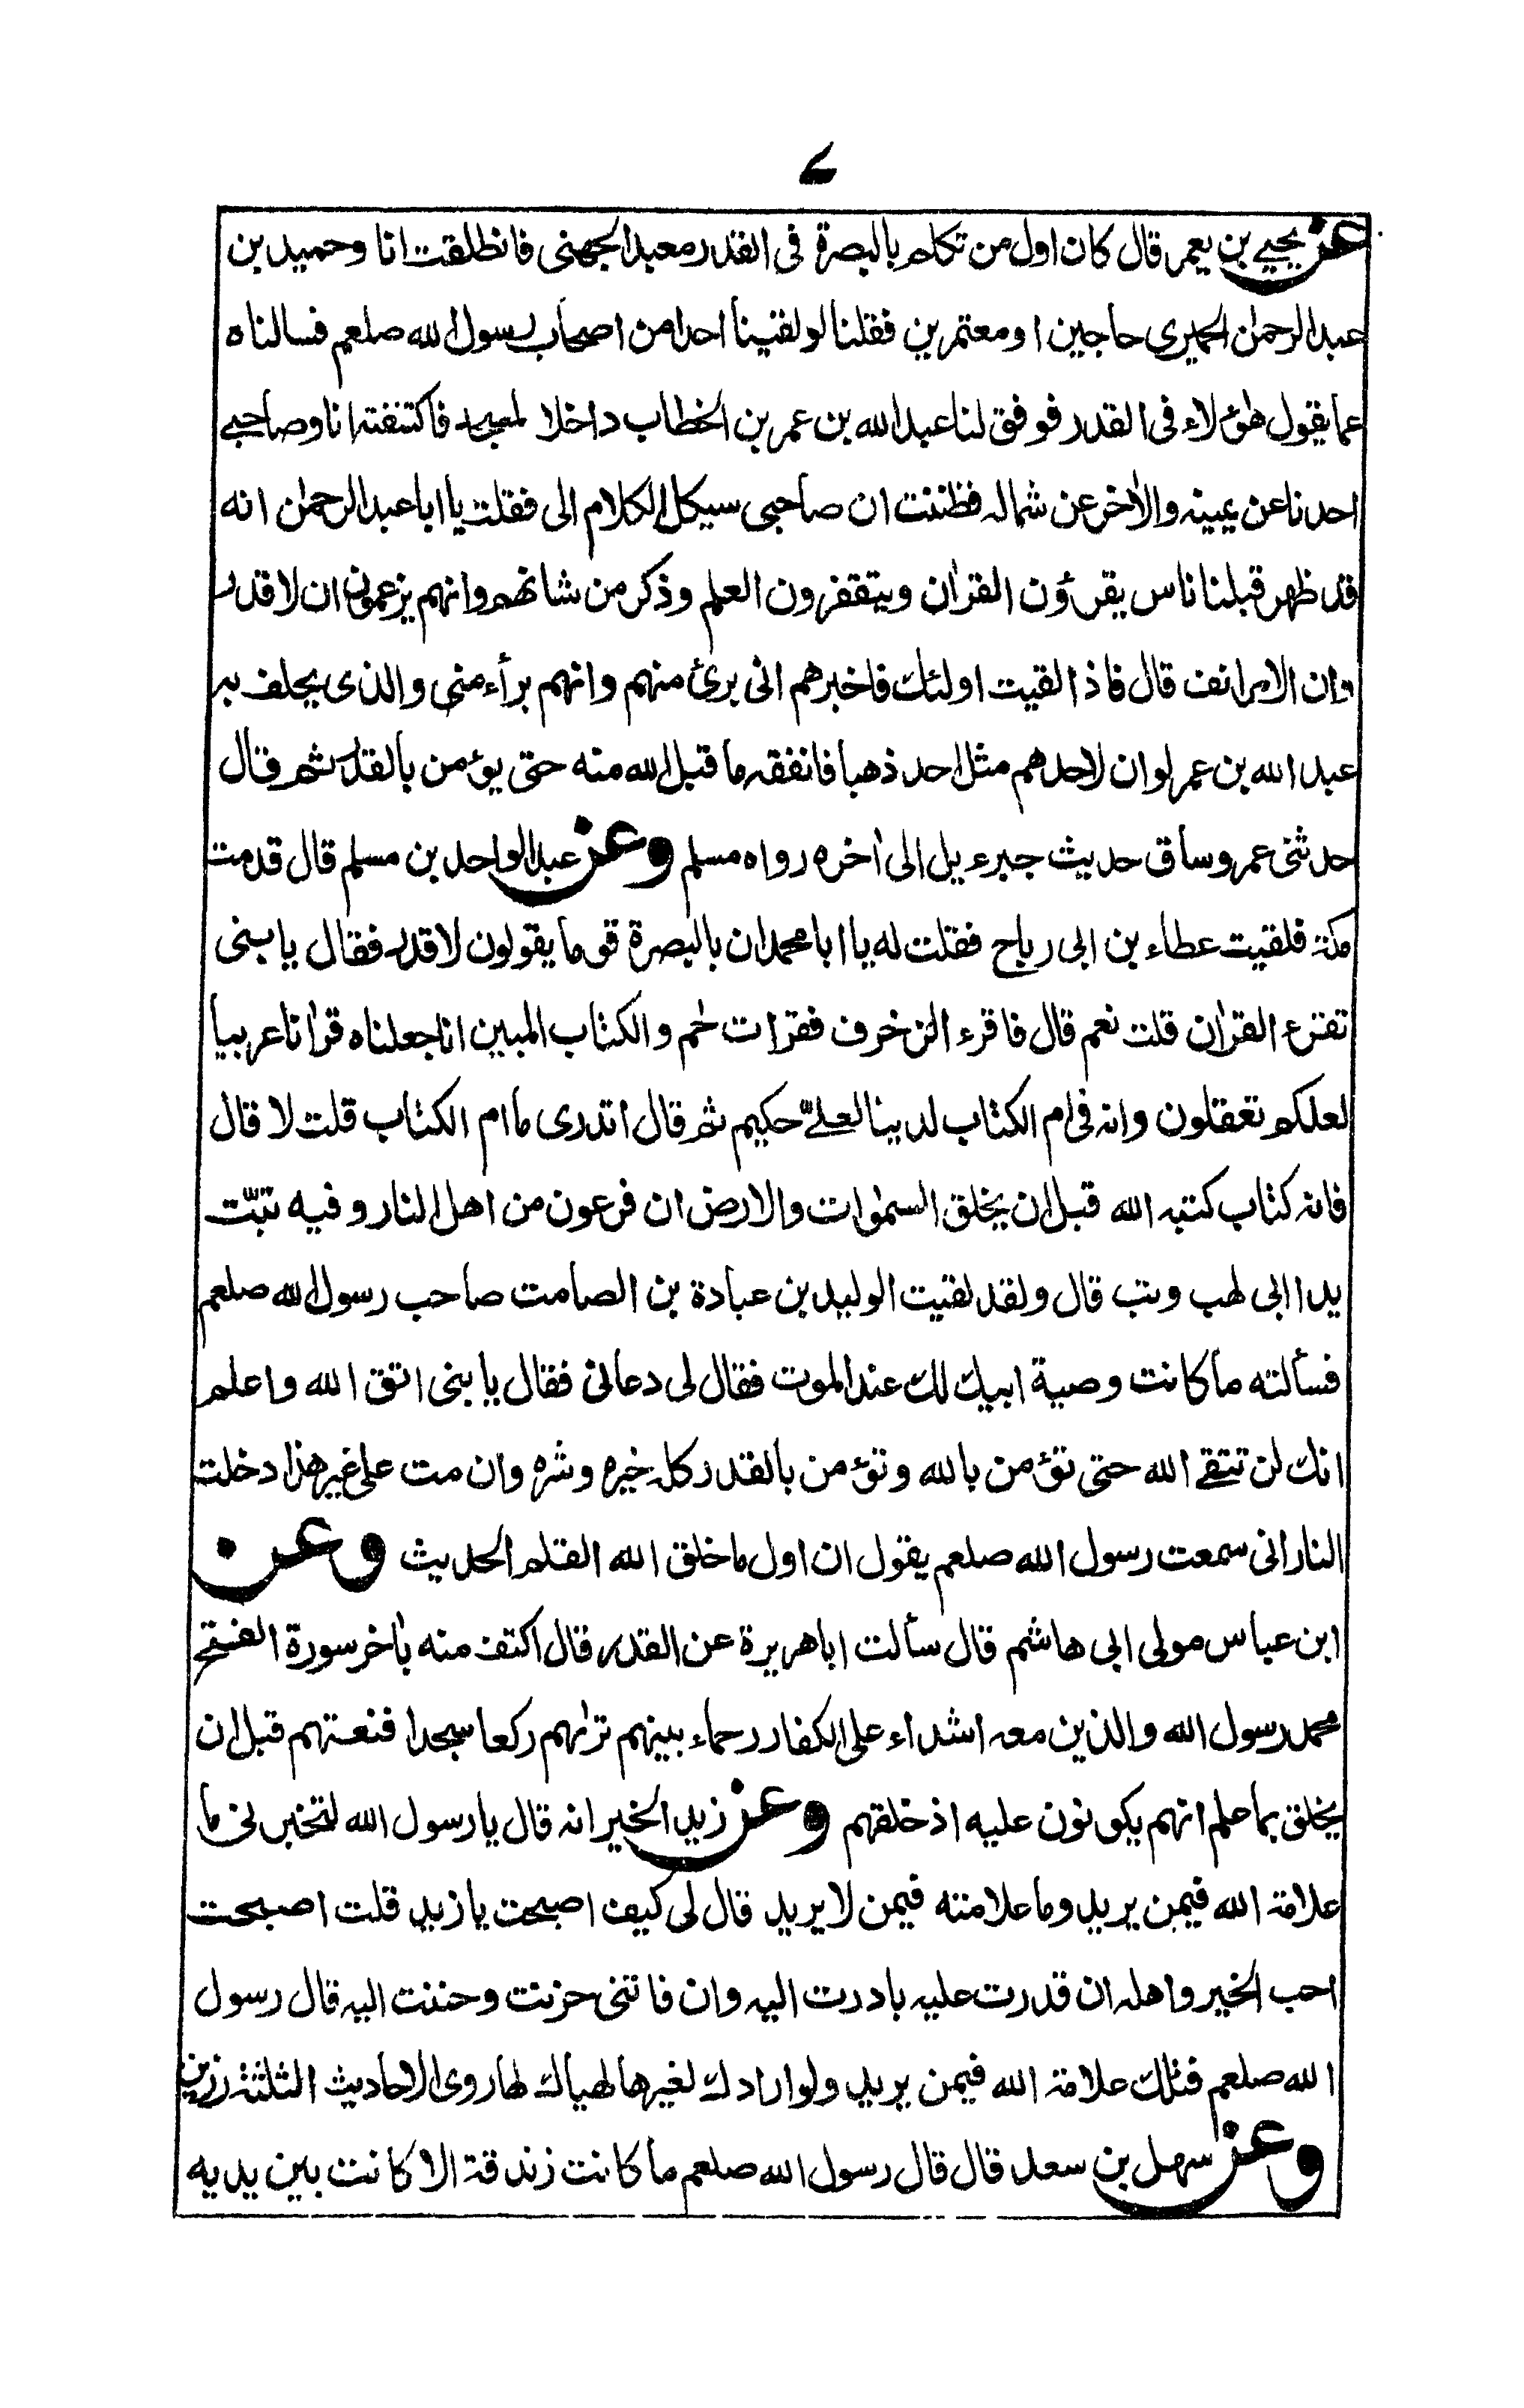 ٧
عن يحيى بن يعمر قال كان اول من تكلم بالبصرة فى القدر معبد الجهنى فانطلقت انا وحميد بن
عبد الرحمٰن الحميرى حاجين او معتمرين فقلنا لو لقينا احدا من اصحاب رسول الله صلعم فسالناه
عما يقول هٰؤلاء فى القدر فوفق لنا عبد الله بن عمر بن الخطاب داخلا لمسجد فاكتنفته انا وصاحبى
احدنا عن يمينه والاٰخر عن شماله فظننت ان صاحبى سيكل الكلام الى فقلت يا ابا عبد الرحمٰن انه
قد ظهر قبلنا ناس يقرؤن القراٰن ويتقفرون العلم وذكر من شانهم وانهم يزعمون ان لا قدر
وان الامر انف قال فاذا لقيت اولئك فاخبرهم انى برئ منهم وانهم برأء منى والذى يحلف به
عبد الله بن عمر لو ان لاحدهم مثل احد ذهبا فانفقه ما قبل الله منه حتى يؤمن بالقدر ثم قال
حدثنى عمر وساق حديث جبرءيل الى اٰخره رواه مسلم وعن عبد الواحد بن مسلم قال قدمت
مكة فلقيت عطاء بن ابى رباح فقلت له يا ابا محمد ان بالبصرة قوما يقولون لا قدر فقال يا بنى
تقرء القراٰن قلت نعم قال فاقرء الزخرف فقرات حٰم والكتاب المبين انا جعلناه قراٰنا عربيا
لعلكم تعقلون وانه فى ام الكتاب لدينا لعلىّ حكيم ثم قال اتدرى ما ام الكتاب قلت لا قال
فانه كتاب كتبه الله قبل ان يخلق السمٰوات والارض ان فرعون من اهل النار وفيه تبّت
يدا ابى لهب وتب قال ولقد لقيت الوليد بن عبادة بن الصامت صاحب رسول الله صلعم
فسألته ما كانت وصية ابيك لك عند الموت فقال لى دعانى فقال يا بنى اتق الله واعلم
انك لن تتقى الله حتى تؤمن بالله وتؤمن بالقدر كله خيره وشره وان مت على غير هذا دخلت
النار انى سمعت رسول الله صلعم يقول ان اول ما خلق الله القلم الحديث وعن
ابن عباس مولى ابى هاشم قال سألت ابا هريرة عن القدر قال اكتف منه باٰخر سورة الفتح
محمد رسول الله والذين معه اشداء على الكفار رحماء بينهم تراٰهم ركعا سجدا فنعتهم قبل ان
يخلق بما علم انهم يكونون عليه اذ خلقهم وعن زيد الخير انه قال يا رسول الله لتخبرنى ما
علامة الله فيمن يريد وما علامته فيمن لا يريد قال لى كيف اصبحت يا زيد قلت اصبحت
احب الخير واهله ان قدرت عليه بادرت اليه وان فاتنى حزنت وحننت اليه قال رسول
الله صلعم فتلك علامة الله فيمن يريد ولو ارادك لغيرها لهياك لها روى الاحاديث الثلثة رزين
وعن سهل بن سعد قال قال رسول الله صلعم ما كانت زندقة الا كانت بين يديه